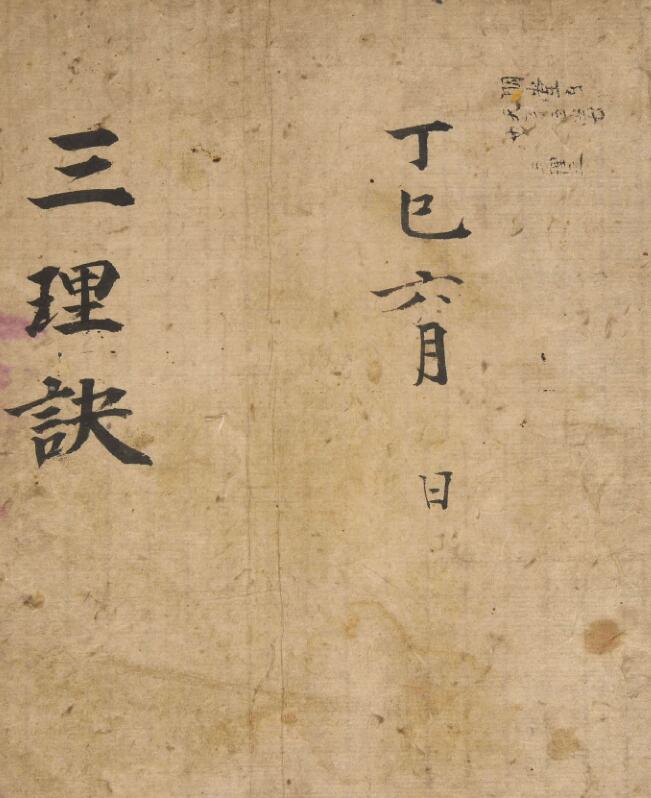 丁巳六月 日
三理訣